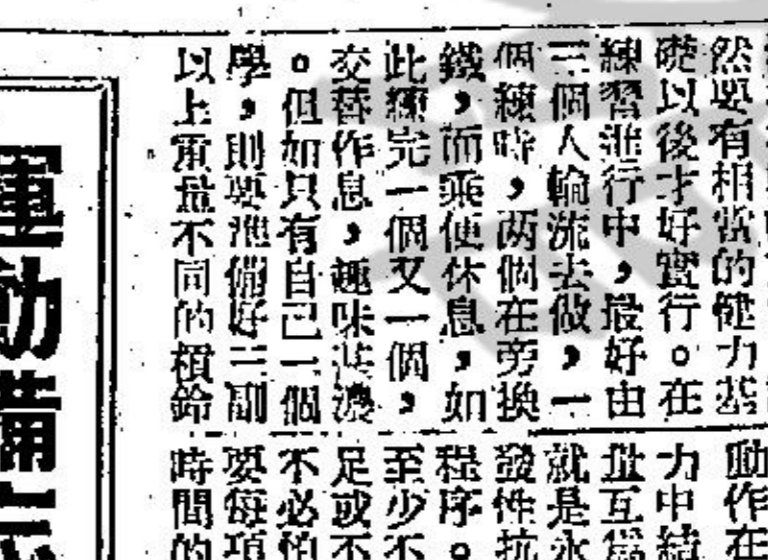 然要有相當的健力基
礎以後才好實行。在
練習進行中，最好由
三個人輪流去做，一
個練時，两個在旁換
鐵，而乘便休息，如
此練完一個又一個，
交替作息，趣味甚濃
。但如只有自己一個
學，則要準備好三副
以上重量不同的槓鈴
動作在
力中結
量互為
就是永
發性抗
程序。
至少不
足或不
不必怕
要每項
時間的
運動備忘